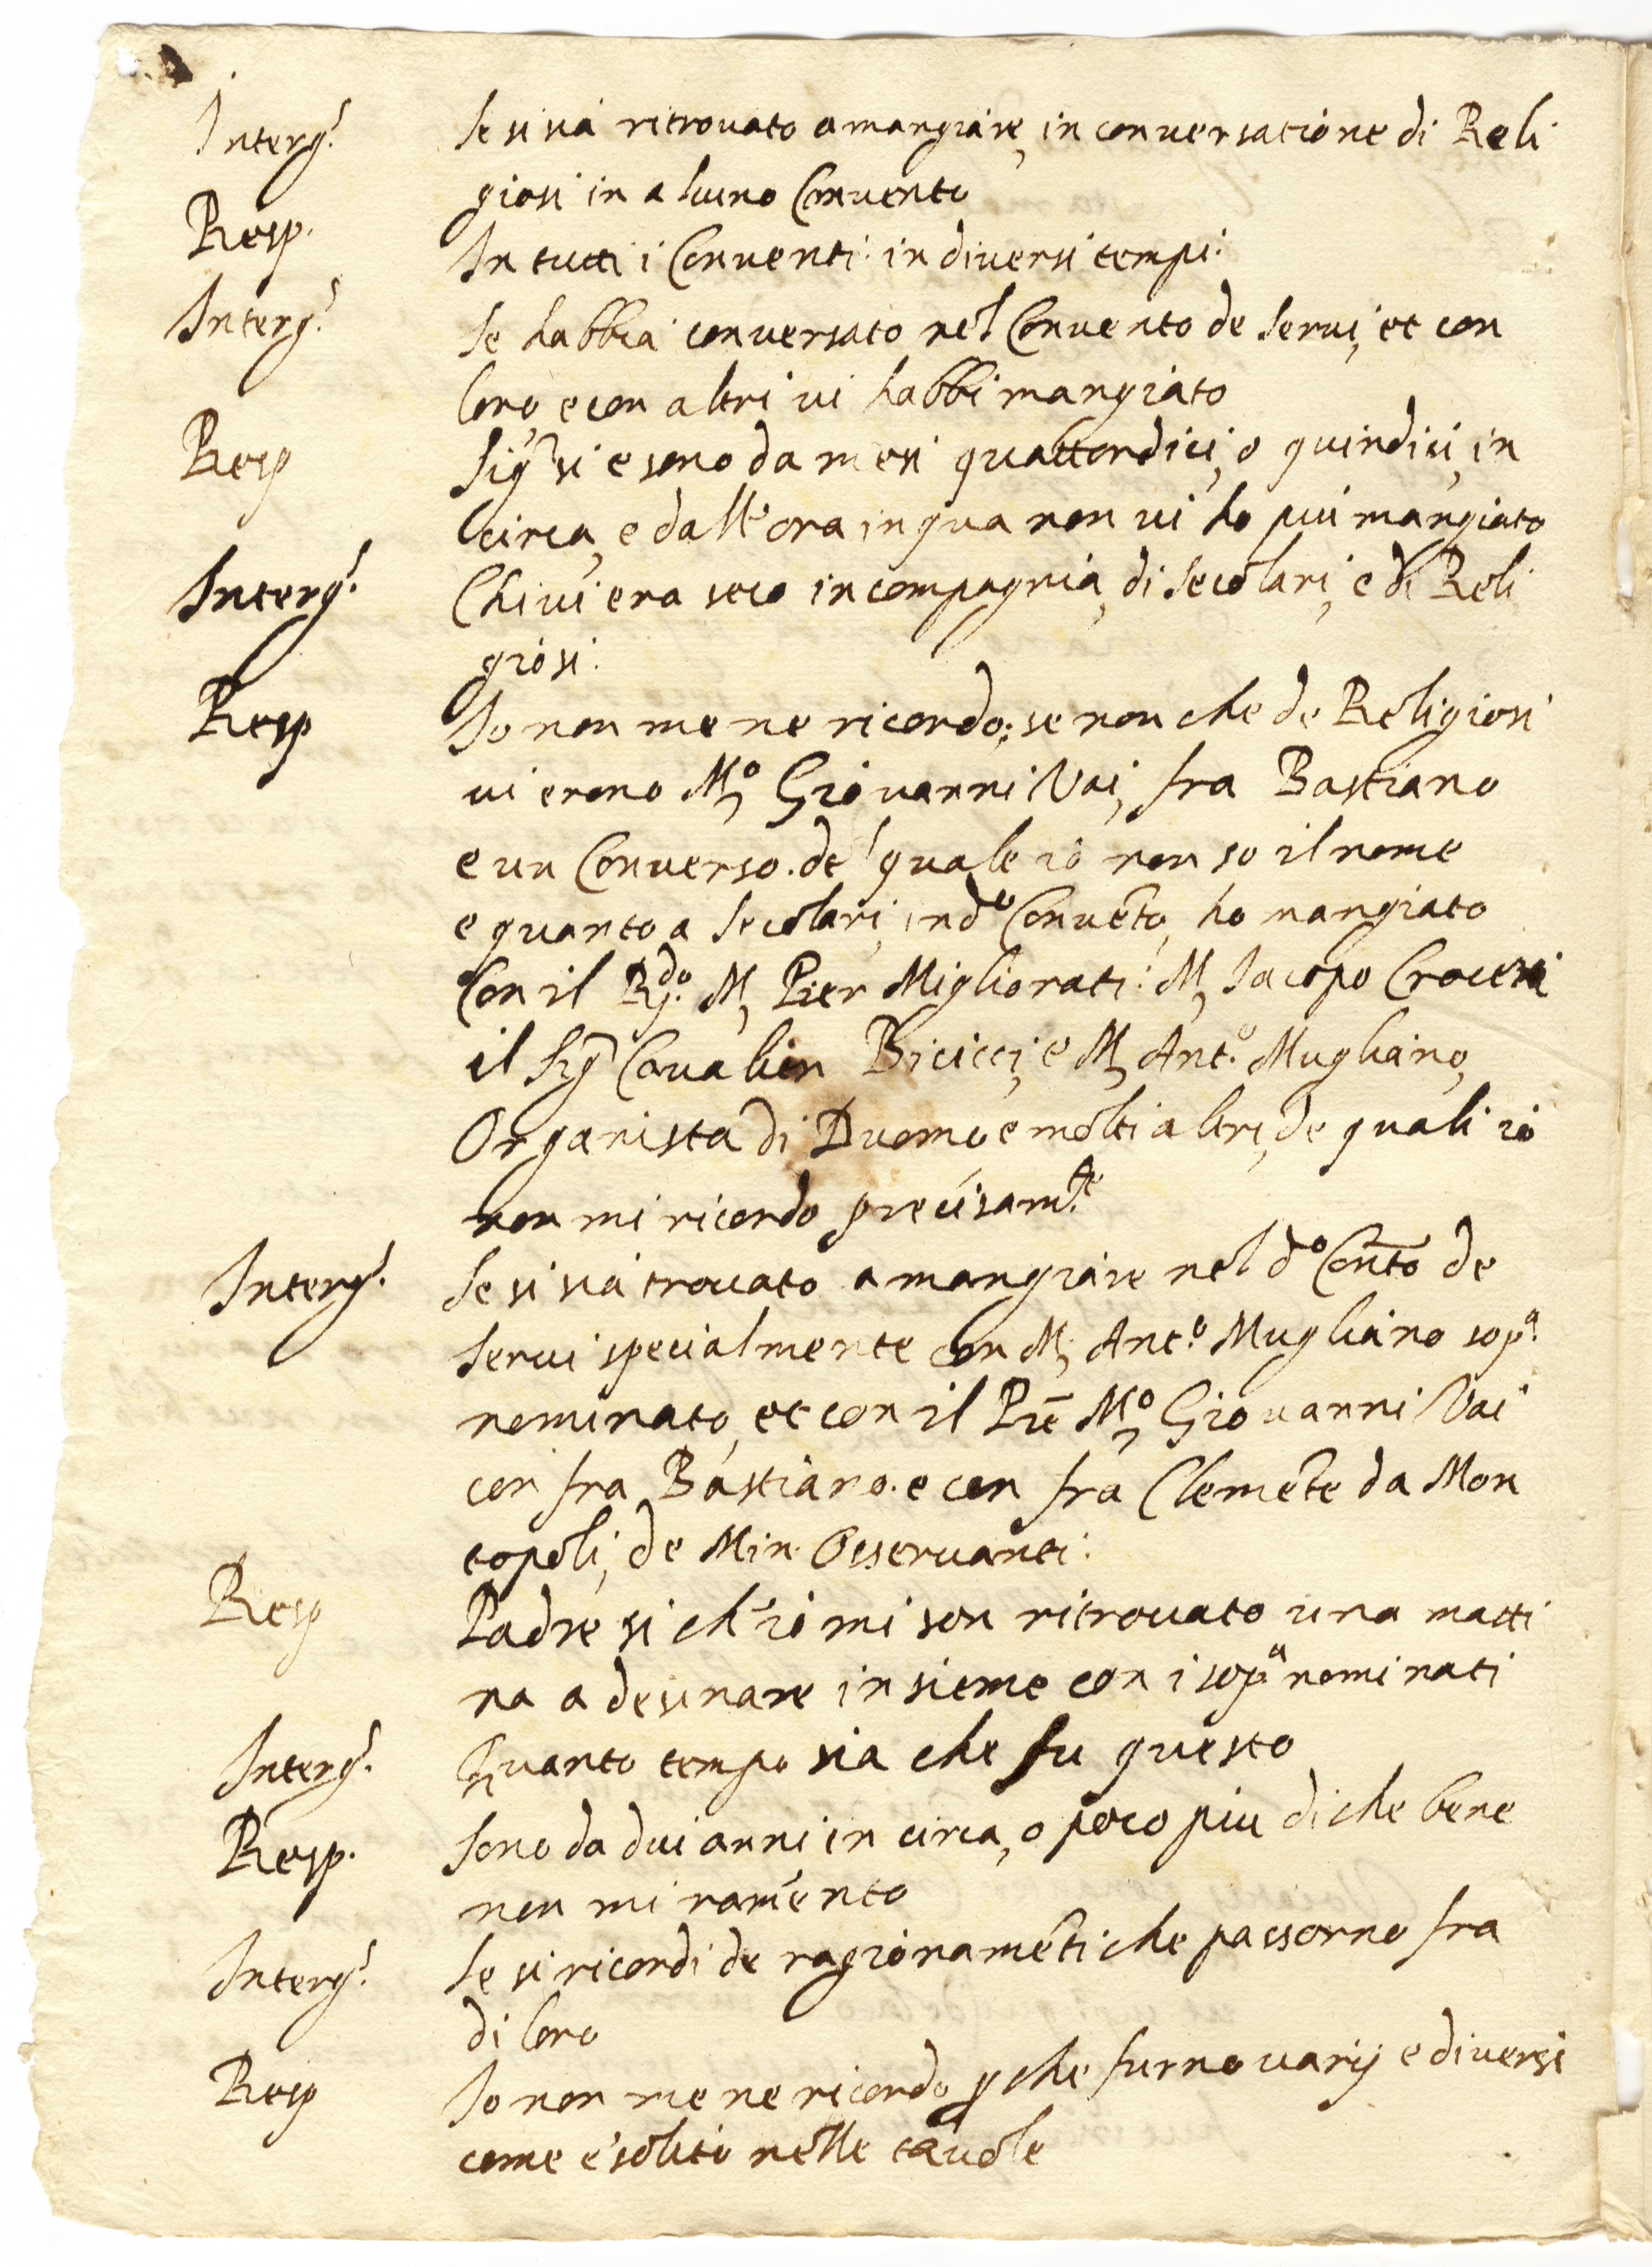 Interg.^t Se si sia ritrovato a mangiare, in conversatione di Reli
giosi in alcuno Convento
Resp. In tutti i Conventi in diversi tempi.
Interg.^t Se habbia conversato nel Convento de Servi, et con
loro, e con altri vi habbi mangiato
Resp Sig.^r si e sono da mesi quattordici, o quindici, in
circa, e dall'ora in qua non vi ho più mangiato
Interg.^t Chi vi era seco in compagnia, di secolari, e di Reli
giosi.
Resp Io non me ne ricordo, se non che de Religiosi
vi erono M.^o Giovanni Vai, fra Bastiano
e un Converso del quale io non so il nome
e quanto a secolari, in d.^o Convēto, ho mangiato
con il R.^do M. Pier Migliorati: M. Jacopo
il Sig.^r Cavalier e M. Ant.^o Mugliano,
Organista di Duomo e molti altri, de quali io
non mi ricordo precisam.^te
Interg.^t Se si sia trovato a mangiare nel d.^o Con̄to de
Servi specialmente con M. Ant.^o Mugliano sop.^a
nominato, et con il Prē M.^o Giovanni Vai
con fra Bastiano. e con fra Clemēte da Mon
topoli, de Min. Osservanti.
Resp Padre si ch'io mi son ritrovato una matti
na a desinare insieme con i sop.^a nominati
Interg.^t Quanto tempo sia che fu questo
Resp. Sono da dui anni in circa, o poco più di che bene
non mi ramento
Interg.^t Se si ricordi de ragionamēti che passorno fra
di loro
Resp Io non me ne ricordo p che furno varij e diversi
come è solito nelle tavole